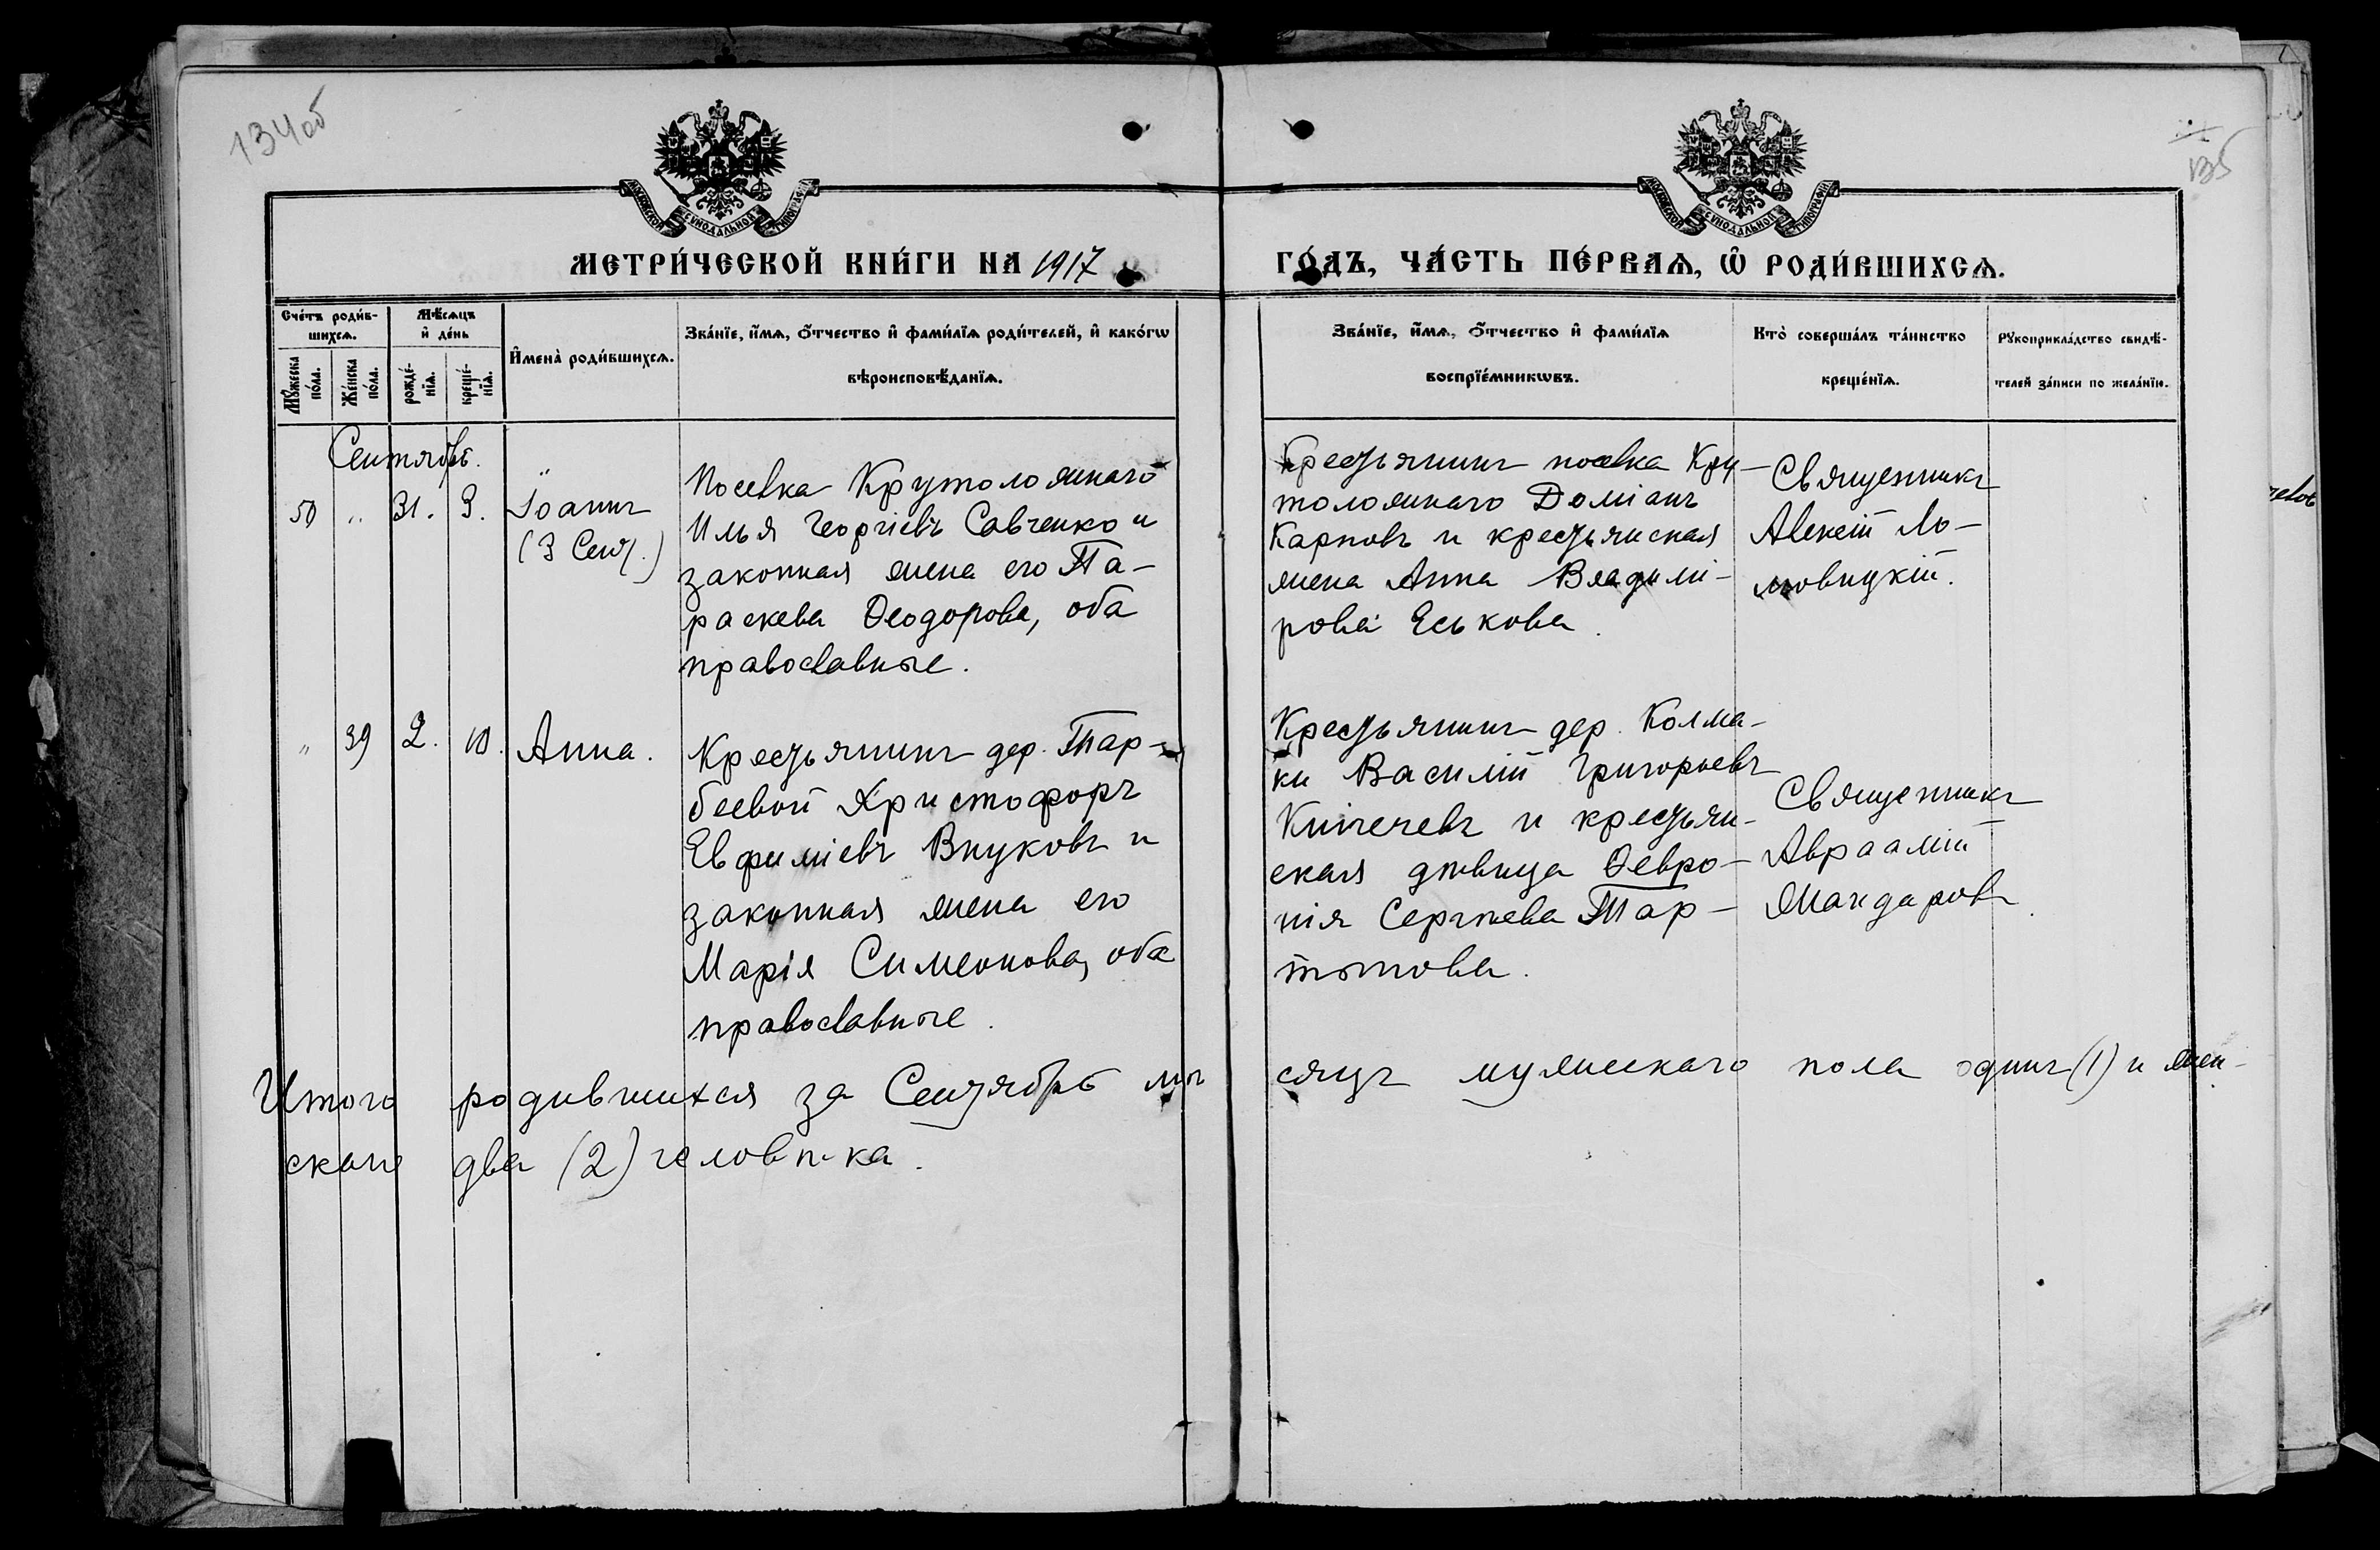 134об
135
МОСКОВСКОЙ СѴНОДАЛЬНОЙ ТИПОГРАФІИ
МОСКОВСКОЙ СѴНОДАЛЬНОЙ ТИПОГРАФІИ
МЕТРИ́ЧЕСКОЙ КНИ́ГИ НА 1917
ГО́ДЪ, ЧА́СТЬ ПЕ́РВАѦ, Ѡ҆ РОДИ́ВШИХСѦ.
Сче́тъ роди́в-
шихсѧ.
Мꙋ́жеска по́ла.
Же́нска по́ла.
Мѣ́сѧцъ
и҆ де́нь
рожде́-
нїѧ.
креще́-
нїѧ.
И҆мена̀ роди́вшихсѧ.
Зва́нїе, и҆́мѧ, ѻ҆́тчество и҆ фами́лїѧ роди́телей, и҆ како́гѡ
вѣроисповѣ́данїѧ.
Зва́нїе, и҆́мѧ, ѻ҆́тчество и҆ фами́лїѧ
воспрїе́мникѡвъ.
Кто̀ соверша́лъ та́инство
креще́нїѧ.
Рꙋкоприкла́дство свидѣ́-
телей за́писи по жела́нїю.
Сентябрь.
50 " 31. 3. Іоаннъ
(3 Сент.)
Поселка Крутоложнаго
Илья Георгіевъ Савченко и
законная жена его Па-
раскева Ѳеодорова, оба
православные.
Крестьянинъ поселка Кру-
толожнаго Доміанъ
Карповъ и крестьянская
жена Анна Владимі-
рова Еськова.
Священникъ
Алексій Ло-
мовицкій.
" 39 2. 10. Анна.
Крестьянинъ дер. Тар-
беевой Христофоръ
Евфиміевъ Внуковъ и
законная жена его
Марія Симеонова, оба
православные.
Крестьянинъ дер. Колма-
ки Василій Григорьевъ
и крестьян-
ская дѣвица Ѳевро-
нія Сергѣева Тар-
Священникъ
Авраамій
Мандаровъ
Итого родившихся за Сентябрь мѣ
сяцъ мужескаго пола одинъ (1) и жен-
скаго два (2) человѣка.